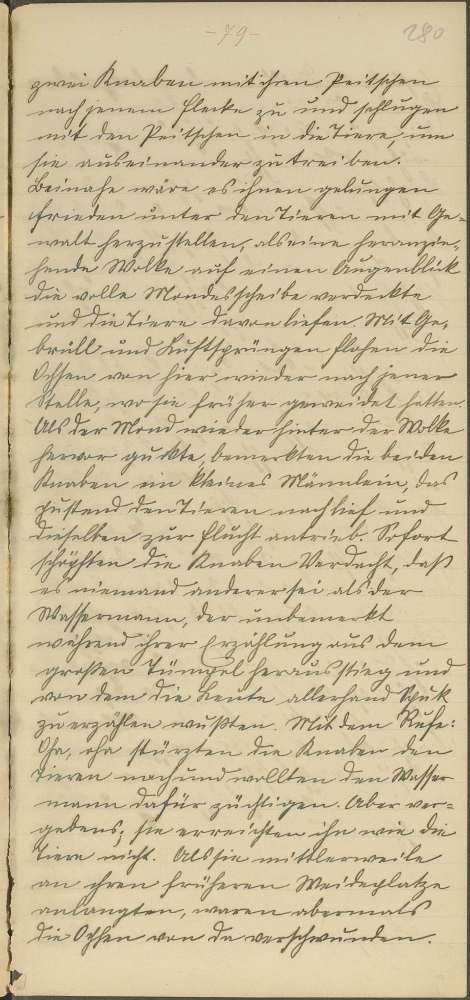 -79-
280
zwei Knaben mit ihren Peitschen
nach jenem Flecke zu und schlugen
mit den Peitschen in die Tiere, um
sie auseinander zu treiben.
Beinahe wäre es ihnen gelungen
Frieden unter den Tieren mit Ge-
walt herzustellen, als eine heranzie-
hende Wolke auf einen Augenblick
die volle Mondesscheibe verdeckte
und die Tiere davon liefen. Mit Ge-
brüll und Luftsprüngen flohen die
Ochsen von hier wieder nach jener
Stelle, wo sie früher geweidet hatten.
Als der Mond wieder hinter der Wolke
hervor guckte, bemerkten die beiden
Knaben ein kleines Männlein, das
hustend den Tieren nachlief und
dieselben zur Flucht antrieb. Sofort
schöpften die Knaben Verdacht, daß
es niemand anderer sei als der
Wassermann, der unbemerkt
während ihrer Erzählung aus dem
großen Tümpel herausstieg und
von dem die Leute allerhand Spuk
zu erzählen wußten. Mit dem Rufe:
Oha, oha stürzten die Knaben den
Tieren nach und wollten den Wasser
mann dafür züchtigen. Aber ver-
gebens; sie erreichten ihn wie die
Tiere nicht. Als sie mittlerweile
an ihren früheren Weideplatze
anlangten, waren abermals
die Ochsen von da verschwunden.